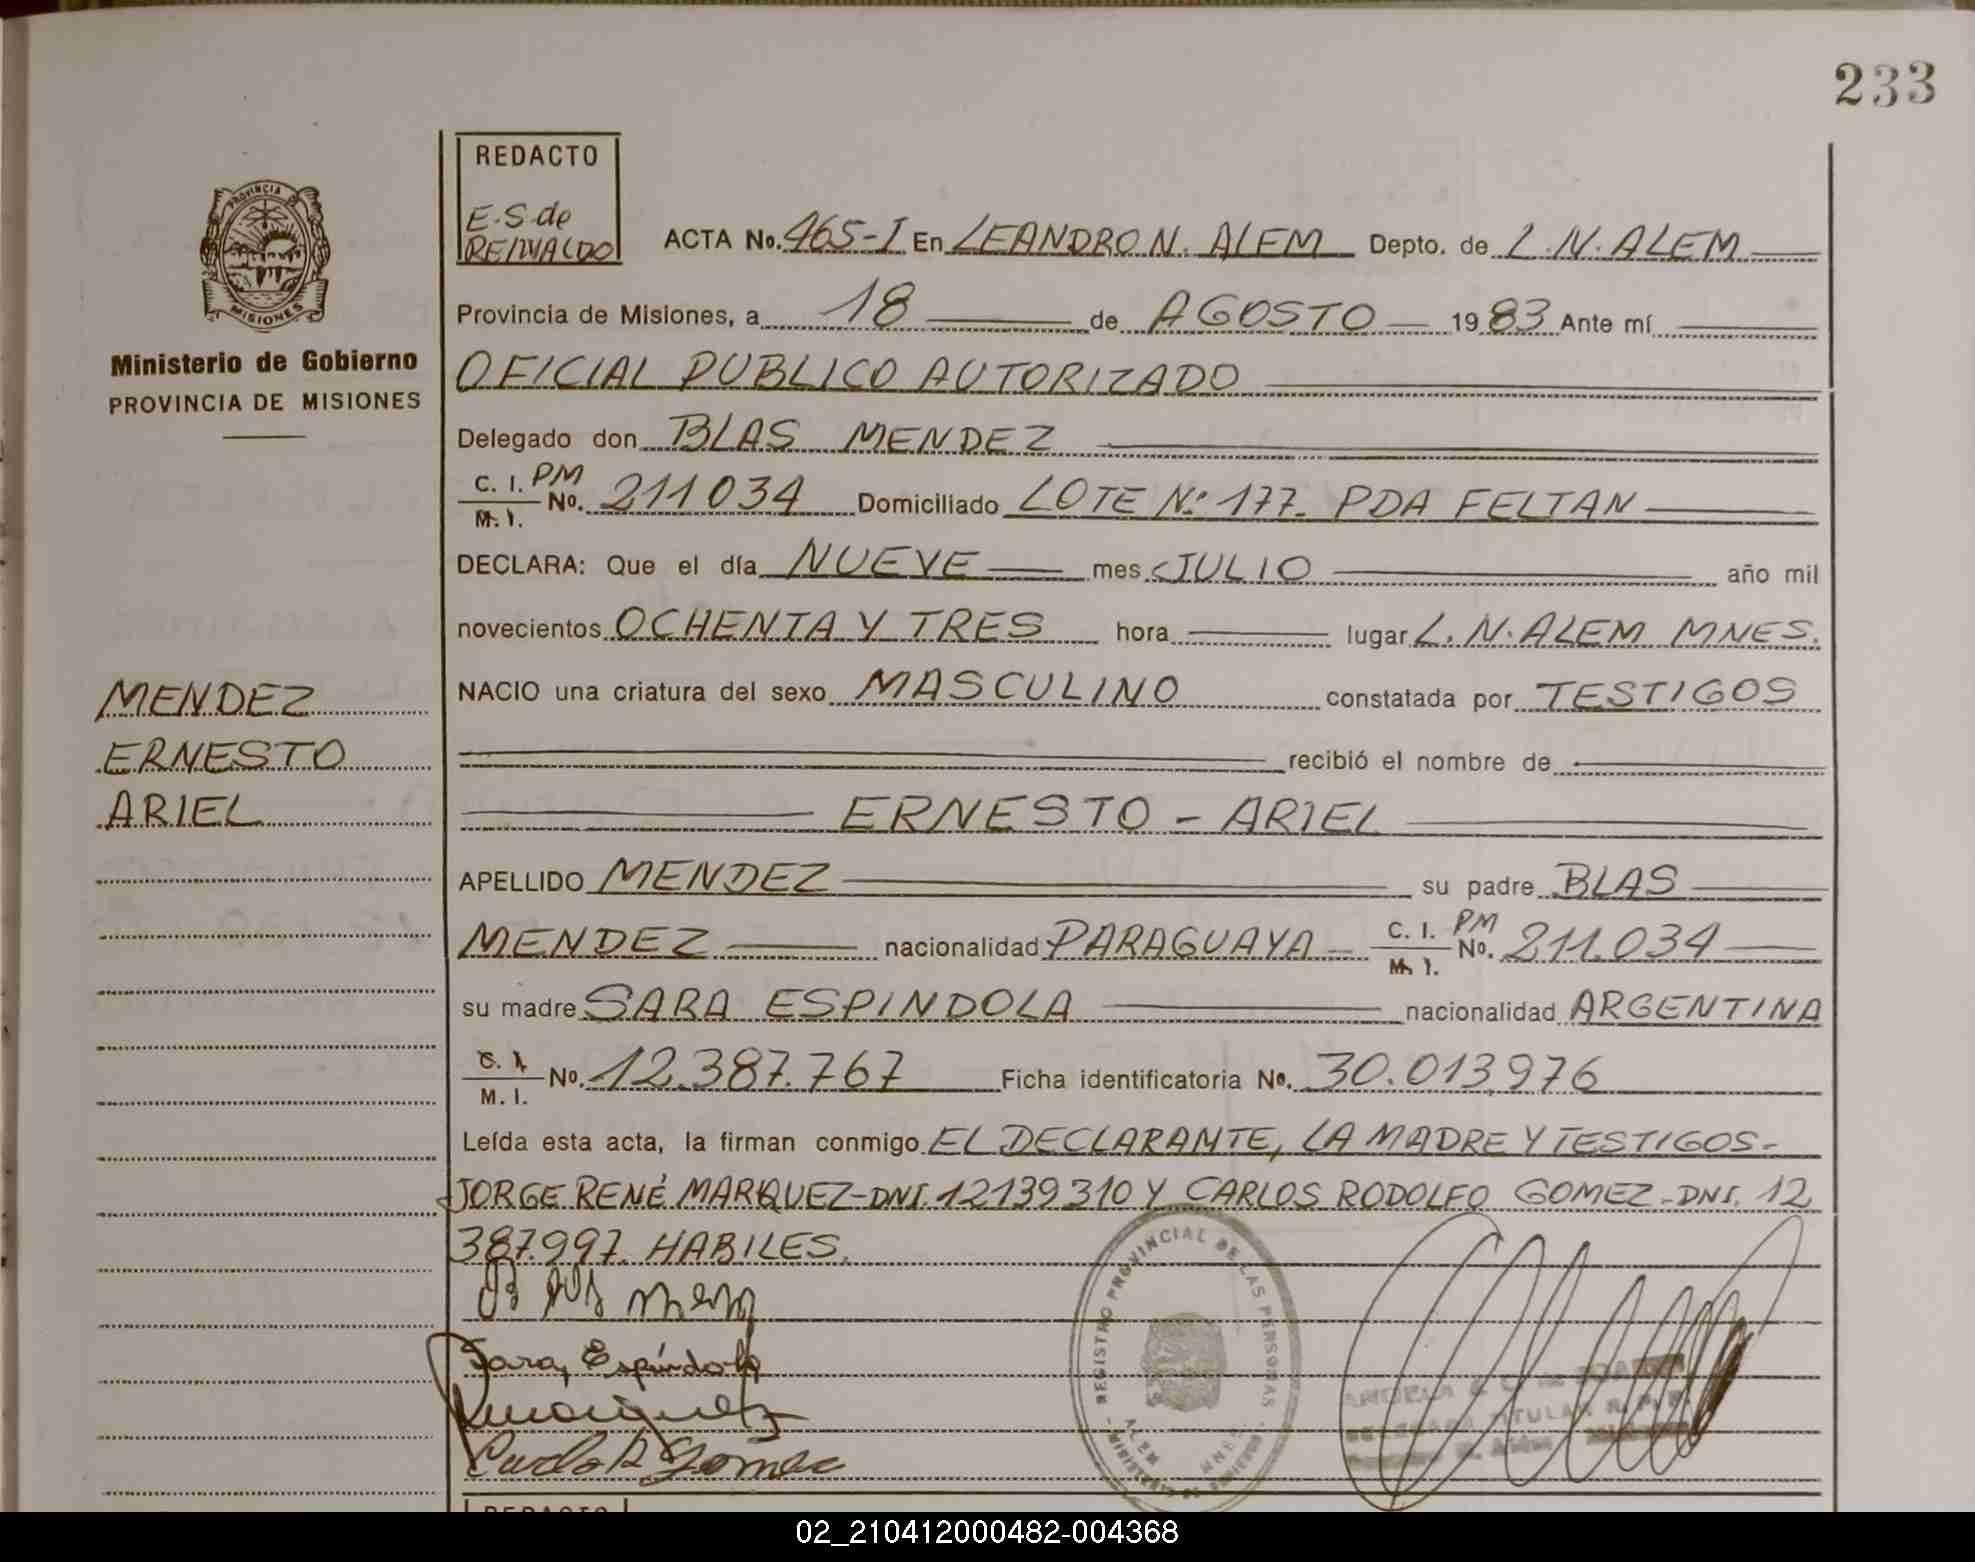 233
REDACTO
E.S. de
REINALDO
ACTA No. 465-I En LEANDRO N. ALEM Depto. de L.N. ALEM
PROVINCIA
MISIONES
Ministerio de Gobierno
PROVINCIA DE MISIONES
Provincia de Misiones, a 18 de AGOSTO 1983 Ante mí
OFICIAL PUBLICO AUTORIZADO
Delegado don BLAS MENDEZ
C. I. PM
M. I. No. 211034 Domiciliado LOTE Nº 177. PDA FELTAN
DECLARA: Que el día NUEVE mes JULIO año mil
novecientos OCHENTA Y TRES hora lugar L.N. ALEM MNES.
NACIO una criatura del sexo MASCULINO constatada por TESTIGOS
recibió el nombre de
ERNESTO - ARIEL
MENDEZ
ERNESTO
ARIEL
APELLIDO MENDEZ su padre BLAS
MENDEZ nacionalidad PARAGUAYA C. I. PM
M. I. No. 211.034
su madre SARA ESPINDOLA nacionalidad ARGENTINA
C. I.
M. I. No. 12.387.767 Ficha identificatoria No. 30.013976
Leída esta acta, la firman conmigo EL DECLARANTE, LA MADRE Y TESTIGOS-
JORGE RENÉ MARQUEZ-DNI. 12139310 Y CARLOS RODOLFO GOMEZ-DNI. 12
387.997. HABILES.
Sara Espíndola
Marquez
Carlos R Gomez
REGISTRO PROVINCIAL DE LAS PERSONAS
ALEM MNES
TITULAR R.P.P.
REDACTO
02_210412000482-004368